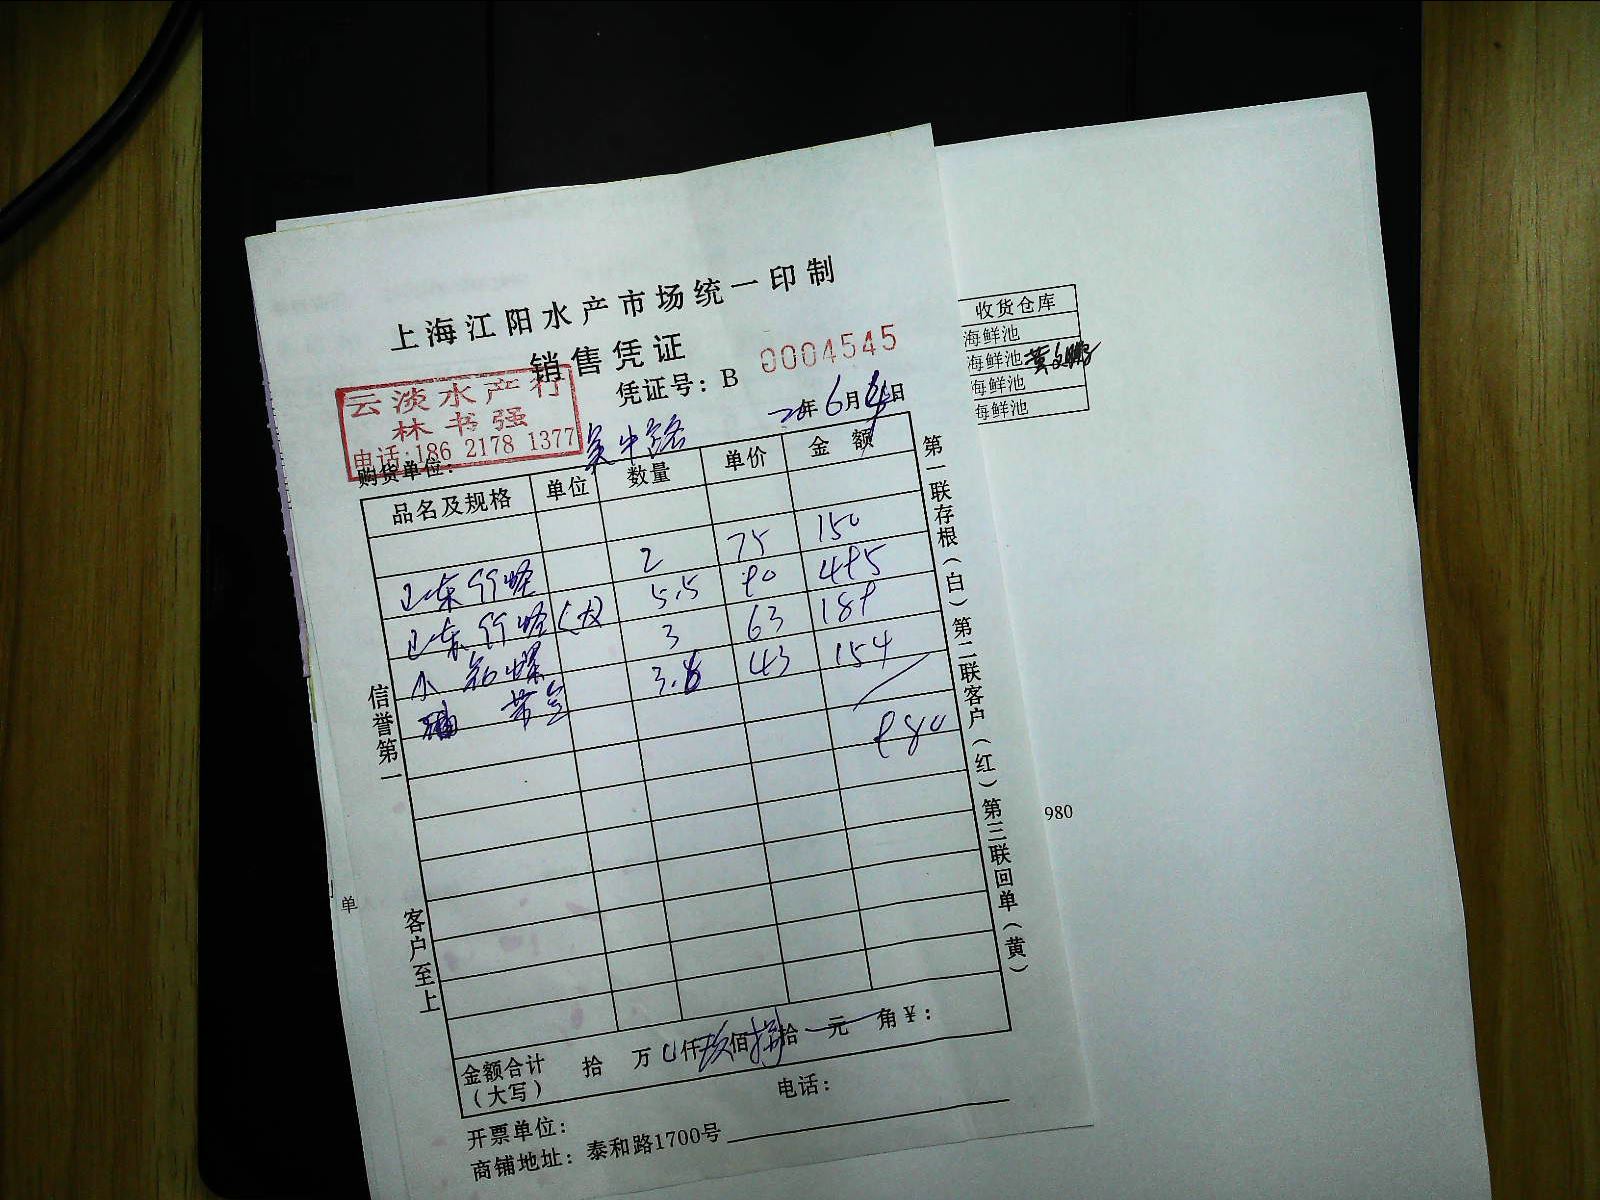 上海江阳水产市场统一印制
销售凭证
凭证号：B 0004545
云淡水产行
林书强
电话：186 2178 1377
购货单位： 吴中路
20年6月 日
品名及规格 单位 数量 单价 金额
山东竹蛏 2 75 150
山东竹蛏（大） 5.5 90 495
小 螺 3 63 189
3.6 43 154
980
信誉第一
客户至上
第一联存根（白）第二联客户（红）第三联回单（黄）
金额合计（大写） 拾 万 0仟玖佰捌拾 元 角￥：
开票单位： 电话：
商铺地址： 泰和路1700号
收货仓库
海鲜池
海鲜池
海鲜池
海鲜池
980
单